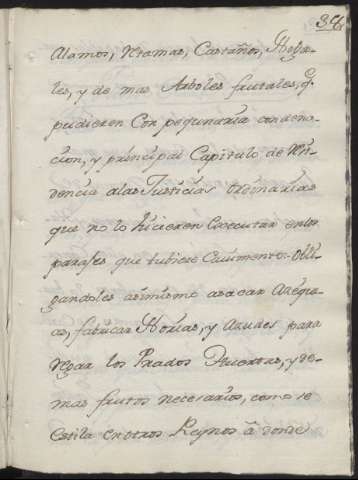 39
Alamos, Retamas, Castaños, Noga-
les, y de mas Arboles frutales, q.
pudieren Con pequnaria condena-
cion, y principal Capitulo de Resi-
dencia alas Justicias Ordinarias
que no lo hicieren executar enlos
parajes que tubiese Cavimento: Obli-
gandoles asimismo asacar Azequi-
as, fabricar Norias, y Azudes para
regar los Prados Huertas, y de-
mas frutos necesarios, como se
Estila en otros Reynos â donde